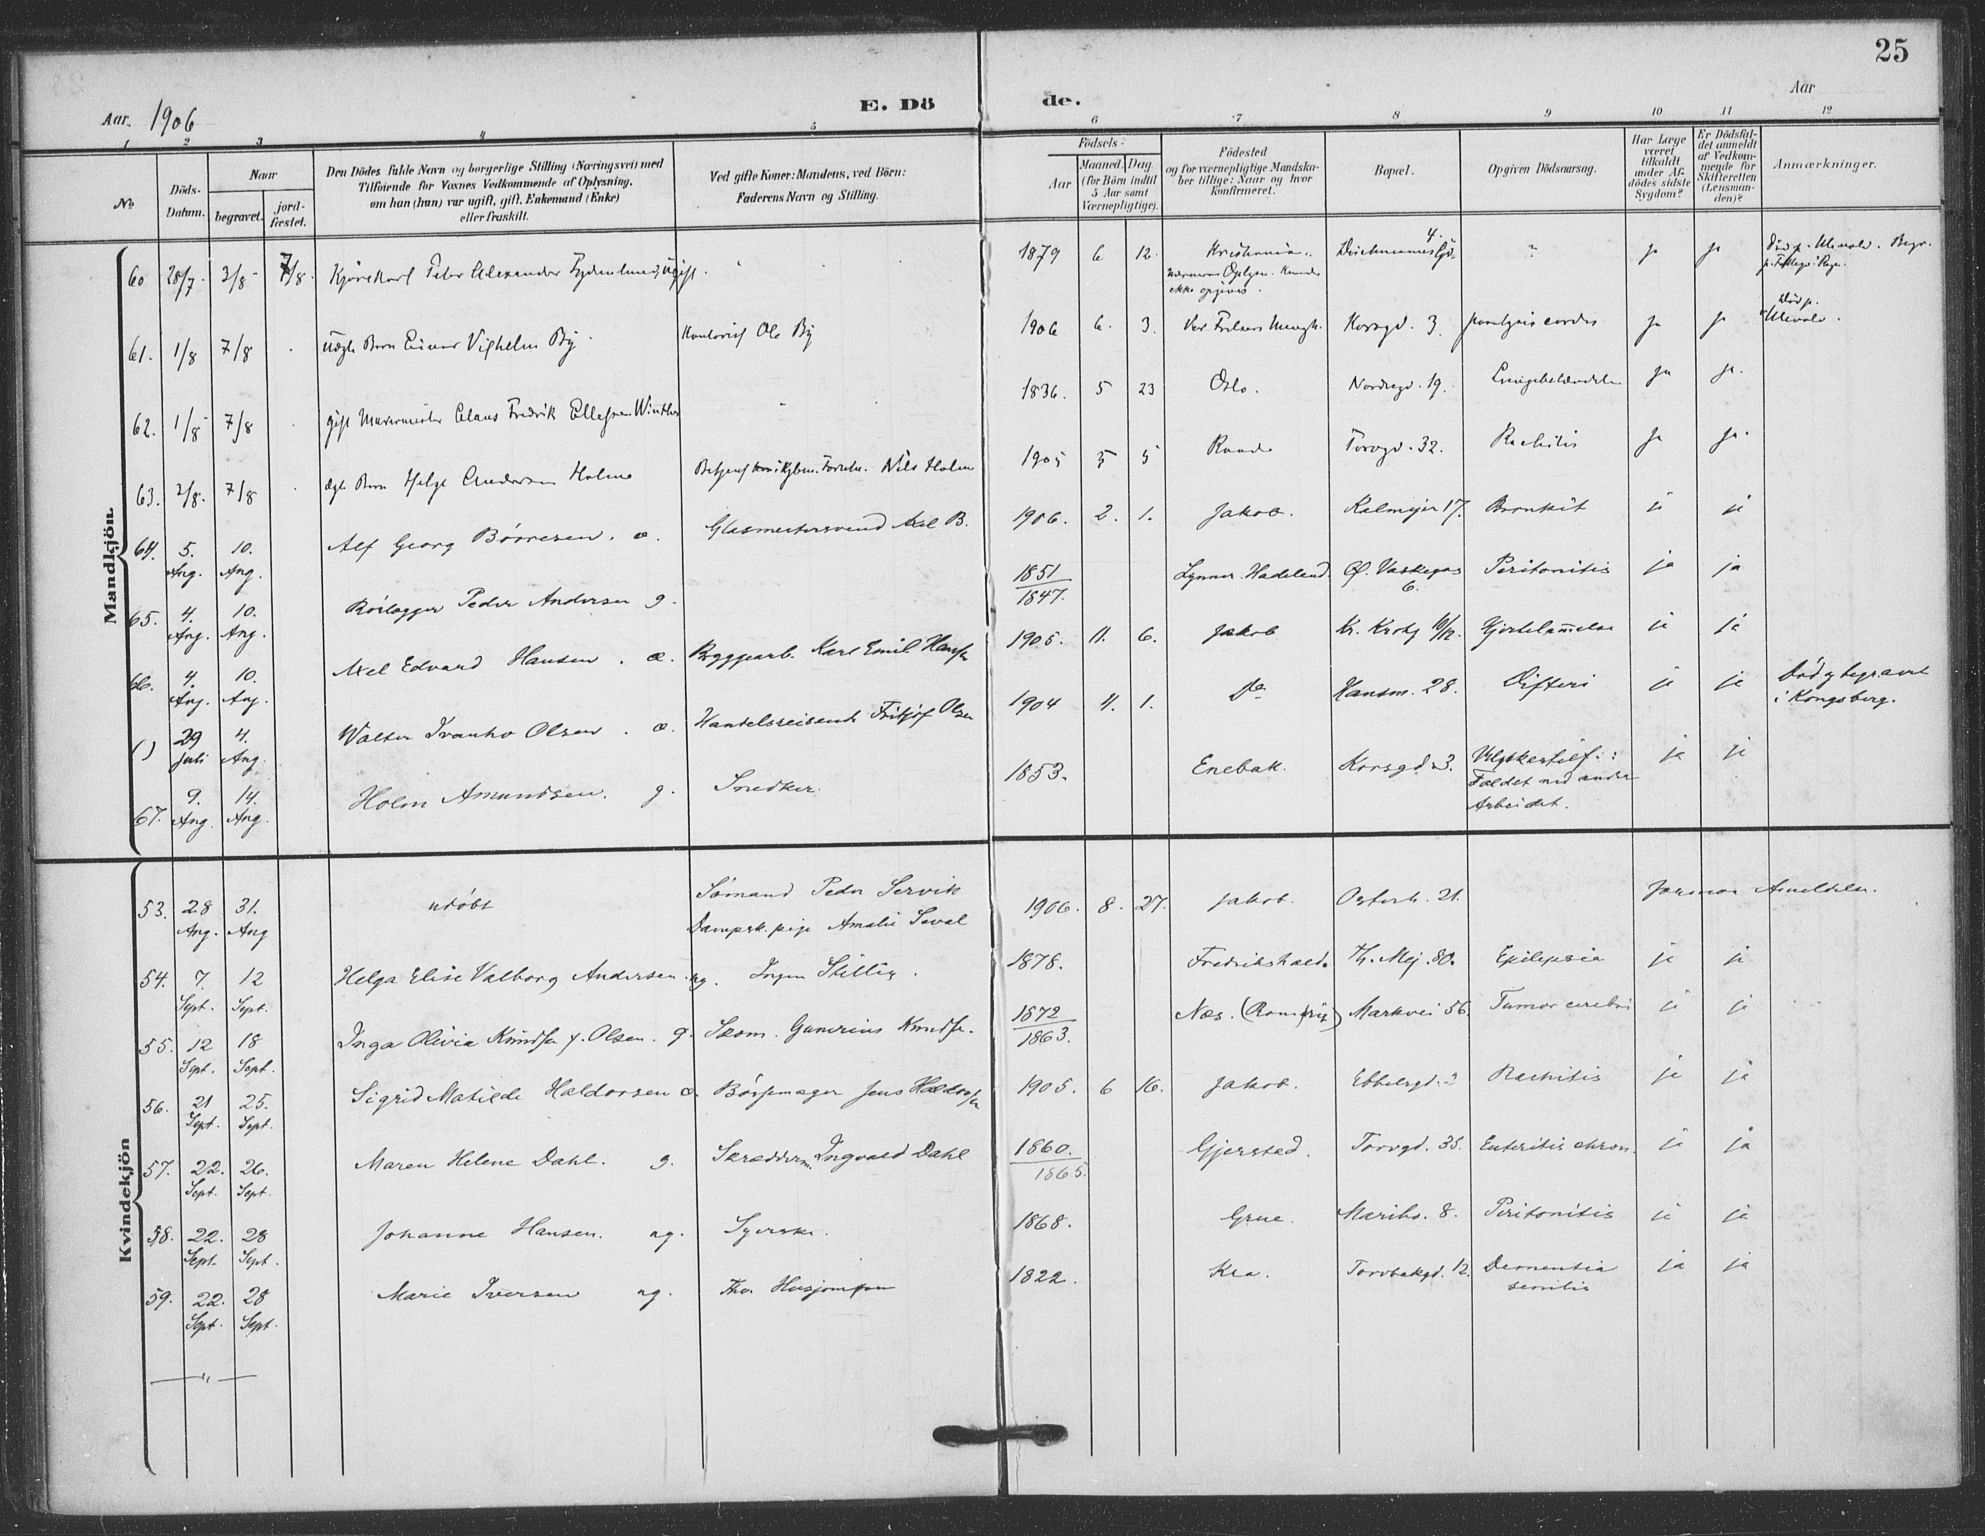 25
Aar 1906
E. Dö de.
Aar
1 2 3 4 5 6 7 8 9 10 11 12
No
Döds-Datum.
Naar
begravet.
jord-fæstet.
Den Dödes fulde Navn og borgerlige Stilling (Næringsvei) med
Tilföiende for Voxnes Vedkommende af Oplysning,
om han (hun) var ugift, gift, Enkemand (Enke)
eller fraskilt.
Ved gifte Koner: Mandens, ved Börn:
Faderens Navn og Stilling.
Födsels-
Aar
Maaned. Dag.
(for Börn indtil
5 Aar samt
Værnepligtige).
Födested
og for værnepligtige Mandska-
ber tillige: Naar og hvor
konfirmeret.
Bopæl.
Opgiven Dödsaarsag.
Har Læge
været
tilkaldt
under Af-
dödes sidste
Sygdom?
Er Dödsfal-
det anmeldt
af Vedkom-
mende for
Skifteretten
(Lensman-
den)?
Anmærkninger.
Mandkjön.
60 28/7 3/8 7/8 Kjørekarl Peter Alexander ugift. 1879 6 12. Kristiania. 4. ? ja ja Død p. Ullevold. Begr.
nærmere Oplysn. kunde
ikke opgives.
61. 1/8 7/8 uægte Barn Einar Vilhelm By. Kontorist Ole By 1906 6. 3. Vor Frelsers Menigh. Korsgd. 3. paralysis cordis ja ja Død p.
Ullevold.
62. 1/8 7/8 gift Murermester Claus Fredrik Ellefsen Winther 1836. 5 23 Oslo. Nordregd. 19. Lungebetændelse ja ja.
63. 2/8. 7/8 ægte Barn Helge Andersen Holm Nils Holm 1905 5 5 Raade Torvgd. 32. Rachitis ja ja.
64. 5. Aug. 10. Aug. Alf Georg Børresen. æ. Glasmestersvend Axel B. 1906. 2. 1. Jakob. Kalmejer 17. Bronkit ja ja
65. 4. Aug. 10. Aug. Rørlægger Peder Andersen g. 1851 1847. Lynner. Hadeland Ø. Vaskegang 6. Peritonitis ja ja
66. 4. Aug. 10. Aug. Axel Edvard Hansen. æ. Bryggearb. Karl Emil Hansen 1905. 11. 6. Jakob Kr. Krohg 10/12. Hjertelammelse ja ja
( ) 29 Juli 4. Aug. Walter Ivanho Olsen. æ. Handelsreisende Fritjof Olsen 1904 4. 1. do Hausm. 28. Difteri ja ja Død og begravet
i Kongsberg.
67. 9. Aug. 14. Aug. Holm Amundsen. g. Snedker. 1853. Enebak. Korsgd. 3. Ulykkestilf.:
Faldet ned under
Arbeidet. ja ja
Kvindekjön
53. 28 Aug. 31. Aug udøbt Sømand Peder Servik
Dampsk. pige Amalie Seval 1906. 8. 27. Jakob. Osterh. 21. Jormor Anmeldelse.
54. 7. Sept. 12 Sept. Helga Elise Valborg Andersen. ug. Ingen Stilling. 1878. Fredrikshald. Th. Mej. 80. Epilepsia ja ja
55. 12 Sept. 18 Sept. Inga Olivia Knudsen f. Olsen. g. Skom. Gunerius Knudsen. 1872 1863. Næs. (Romerike) Markvei 56. Tumor cerebri ja ja
56. 21 Sept. 25. Sept. Sigrid Matilde Haldorsen æ. Børsemager Jens Haldorsen 1905. 6 16. Jakob. Ebbelsgd. 3 Rachitis ja ja
57. 22. Sept. 26. Sept. Maren Helene Dahl. g. Skrædderm. Ingvald Dahl 1860. 1865. Gjerstad. Torvgd. 35. Enteritis chron. ja ja
58. 22. Sept. 28 Sept. Johanne Hansen. ug. Syerske. 1868. Grue. Maribo. 8. Peritonitis ja ja
59. 22. Sept. 28 Sept. Marie Iversen ug. 1822. Kra. Torvbakgd. 12. Dementia
senilis ja ja